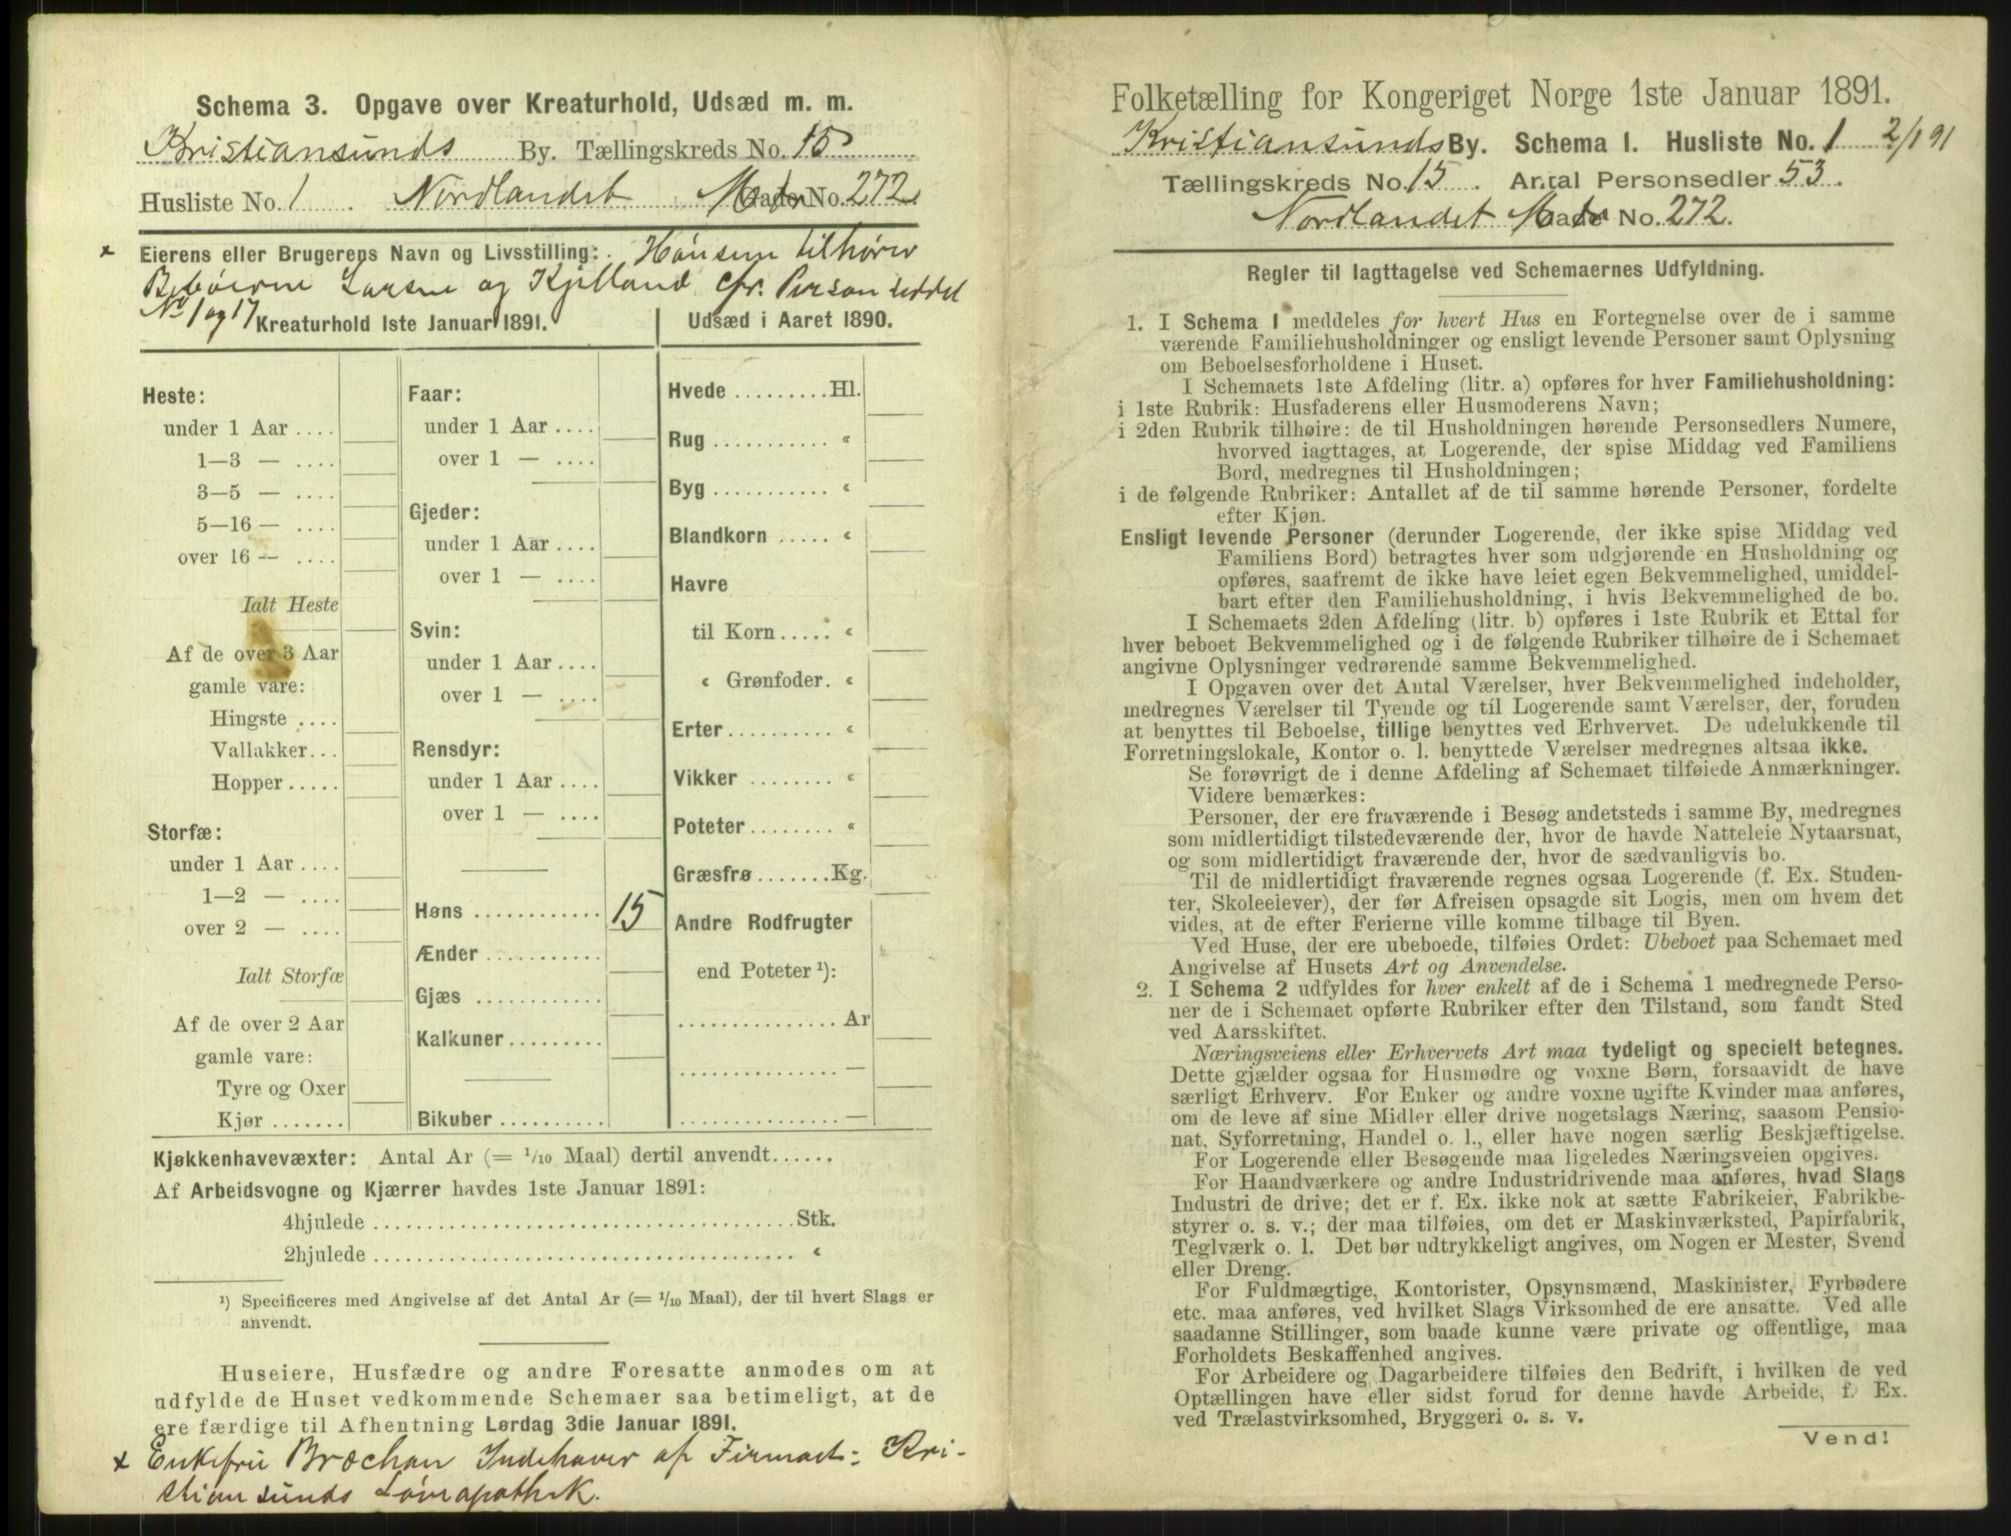 Schema 3. Opgave over Kreaturhold, Udsæd m. m.
Kristiansunds By. Tællingskreds No. 15
Husliste No. 1 Nordlandet Gade No. 272
x Eierens eller Brugerens Navn og Livsstilling: Hønsene tilhører
Beboerne Larsen og Kjelland cfr. Personseddel
No 1 og 17
Kreaturhold 1ste Januar 1891.
Heste:
under 1 Aar ....
1—3 — ....
3—5 — ....
5—16 — ....
over 16 — ....
Ialt Heste
Af de over 3 Aar
gamle vare:
Hingste ....
Vallakker...
Hopper.....
Storfæ:
under 1 Aar ....
1—2 — ....
over 2 — ....
Ialt Storfæ
Af de over 2 Aar
gamle vare:
Tyre og Oxer
Kjør .......
Faar:
under 1 Aar ....
over 1 — ....
Gjeder:
under 1 Aar ....
over 1 — ....
Svin:
under 1 Aar ....
over 1 — ....
Rensdyr:
under 1 Aar ....
over 1 — ....
Høns ............ 15
Ænder ...........
Gjæs ............
Kalkuner.........
Bikuber ..........
Udsæd i Aaret 1890.
Hvede .........Hl.
Rug ........... «
Byg ........... «
Blandkorn ..... «
Havre
til Korn ..... «
« Grønfoder. «
Erter.......... «
Vikker ........ «
Poteter........ «
Græsfrø .......Kg.
Andre Rodfrugter
end Poteter ¹):
............... Ar
............... —
............... —
Kjøkkenhavevæxter: Antal Ar (= 1/10 Maal) dertil anvendt......
Af Arbeidsvogne og Kjærrer havdes 1ste Januar 1891:
4hjulede ........................................Stk.
2hjulede ........................................ «
¹) Specificeres med Angivelse af det Antal Ar (= 1/10 Maal), der til hvert Slags er
anvendt.
Huseiere, Husfædre og andre Foresatte anmodes om at
udfylde de Huset vedkommende Schemaer saa betimeligt, at de
ere færdige til Afhentning Lørdag 3die Januar 1891.
x Enkefru Bræchan Indehaver af Firmaet: Kri-
stiansunds Løveapothek.
Folketælling for Kongeriget Norge 1ste Januar 1891.
Kristiansunds By. Schema I. Husliste No. 1 2/1 91
Tællingskreds No. 15. Antal Personsedler 53.
Nordlandet Gade No. 272.
Regler til Iagttagelse ved Schemaernes Udfyldning.
1. I Schema 1 meddeles for hvert Hus en Fortegnelse over de i samme
værende Familiehusholdninger og ensligt levende Personer samt Oplysning
om Beboelsesforholdene i Huset.
I Schemaets 1ste Afdeling (litr. a) opføres for hver Familiehusholdning:
i 1ste Rubrik: Husfaderens eller Husmoderens Navn;
i 2den Rubrik tilhøire: de til Husholdningen hørende Personsedlers Numere,
hvorved iagttages, at Logerende, der spise Middag ved Familiens
Bord, medregnes til Husholdningen;
i de følgende Rubriker: Antallet af de til samme hørende Personer, fordelte
efter Kjøn.
Ensligt levende Personer (derunder Logerende, der ikke spise Middag ved
Familiens Bord) betragtes hver som udgjørende en Husholdning og
opføres, saafremt de ikke have leiet egen Bekvemmelighed, umiddel-
bart efter den Familiehusholdning, i hvis Bekvemmelighed de bo.
I Schemaets 2den Afdeling (litr. b) opføres i 1ste Rubrik et Ettal for
hver beboet Bekvemmelighed og i de følgende Rubriker tilhøire de i Schemaet
angivne Oplysninger vedrørende samme Bekvemmelighed.
I Opgaven over det Antal Værelser, hver Bekvemmelighed indeholder,
medregnes Værelser til Tyende og til Logerende samt Værelser, der, foruden
at benyttes til Beboelse, tillige benyttes ved Erhvervet. De udelukkende til
Forretningslokale, Kontor o. l. benyttede Værelser medregnes altsaa ikke.
Se forøvrigt de i denne Afdeling af Schemaet tilføiede Anmærkninger.
Videre bemærkes:
Personer, der ere fraværende i Besøg andetsteds i samme By, medregnes
som midlertidigt tilstedeværende der, hvor de havde Natteleie Nytaarsnat,
og som midlertidigt fraværende der, hvor de sædvanligvis bo.
Til de midlertidigt fraværende regnes ogsaa Logerende (f. Ex. Studen-
ter, Skoleeiever), der før Afreisen opsagde sit Logis, men om hvem det
vides, at de efter Ferierne ville komme tilbage til Byen.
Ved Huse, der ere ubeboede, tilføies Ordet: Ubeboet paa Schemaet med
Angivelse af Husets Art og Anvendelse.
2. I Schema 2 udfyldes for hver enkelt af de i Schema 1 medregnede Perso-
ner de i Schemaet opførte Rubriker efter den Tilstand, som fandt Sted
ved Aarsskiftet.
Næringsveiens eller Erhvervets Art maa tydeligt og specielt betegnes.
Dette gjælder ogsaa for Husmødre og voxne Børn, forsaavidt de have
særligt Erhverv. For Enker og andre voxne ugifte Kvinder maa anføres,
om de leve af sine Midler eller drive nogetslags Næring, saasom Pensio-
nat, Syforretning, Handel o. l., eller have nogen særlig Beskjæftigelse.
For Logerende eller Besøgende maa ligeledes Næringsveien opgives.
For Haandværkere og andre Industridrivende maa anføres, hvad Slags
Industri de drive; det er f. Ex. ikke nok at sætte Fabrikeier, Fabrikbe-
styrer o. s. v.; der maa tilføies, om det er Maskinværksted, Papirfabrik,
Teglværk o. l. Det bør udtrykkeligt angives, om Nogen er Mester, Svend
eller Dreng.
For Fuldmægtige, Kontorister, Opsynsmænd, Maskinister, Fyrbødere
etc. maa anføres, ved hvilket Slags Virksomhed de ere ansatte. Ved alle
saadanne Stillinger, som baade kunne være private og offentlige, maa
Forholdets Beskaffenhed angives.
For Arbeidere og Dagarbeidere tilføies den Bedrift, i hvilken de ved
Optællingen have eller sidst forud for denne havde Arbeide, f. Ex.
ved Trælastvirksomhed, Bryggeri o. s. v.
Vend!